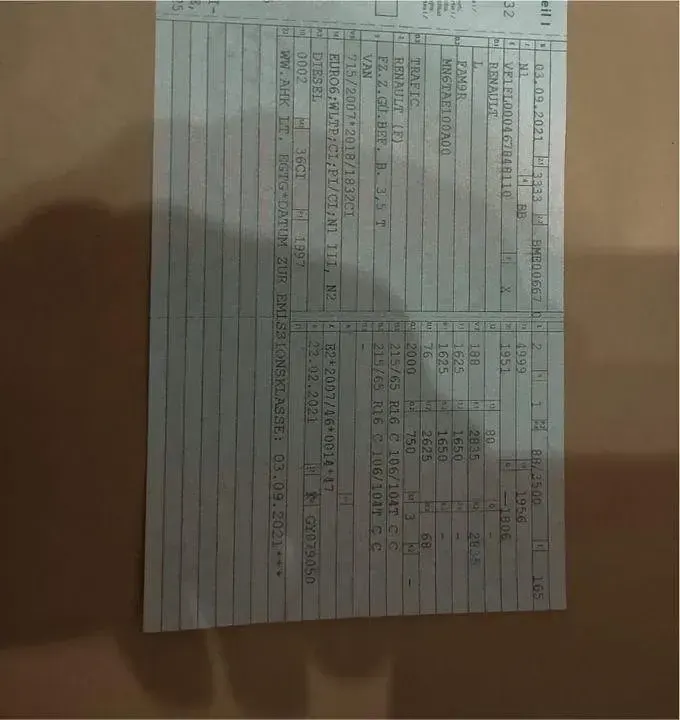 eil I
32
03.09.2021 3333 BME00667 0
N1 BB
VF1FL000467848110 X
RENAULT
L
FAM9R
MN6TAE100A00
TRAFIC
RENAULT (F)
FZ.Z.GÜ.BEF. B. 3,5 T
VAN
715/2007*2018/1832CI
EURO6;WLTP;CI;PI/CI;N1 III, N2
DIESEL
0002 36CI 1997
WW.AHK LT. EGTG*DATUM ZUR EMISSIONSKLASSE: 03.09.2021***
2 1 88/3500 165
4999 1956
1951 —1806
80 -
188 2835 2835
1625 1650 -
1625 1650 -
76 2625 68
2000 750 3 -
215/65 R16 C 106/104T C C
215/65 R16 C 106/104T C C
-
E2*2007/46*0014*47
22.02.2021 K GY079050